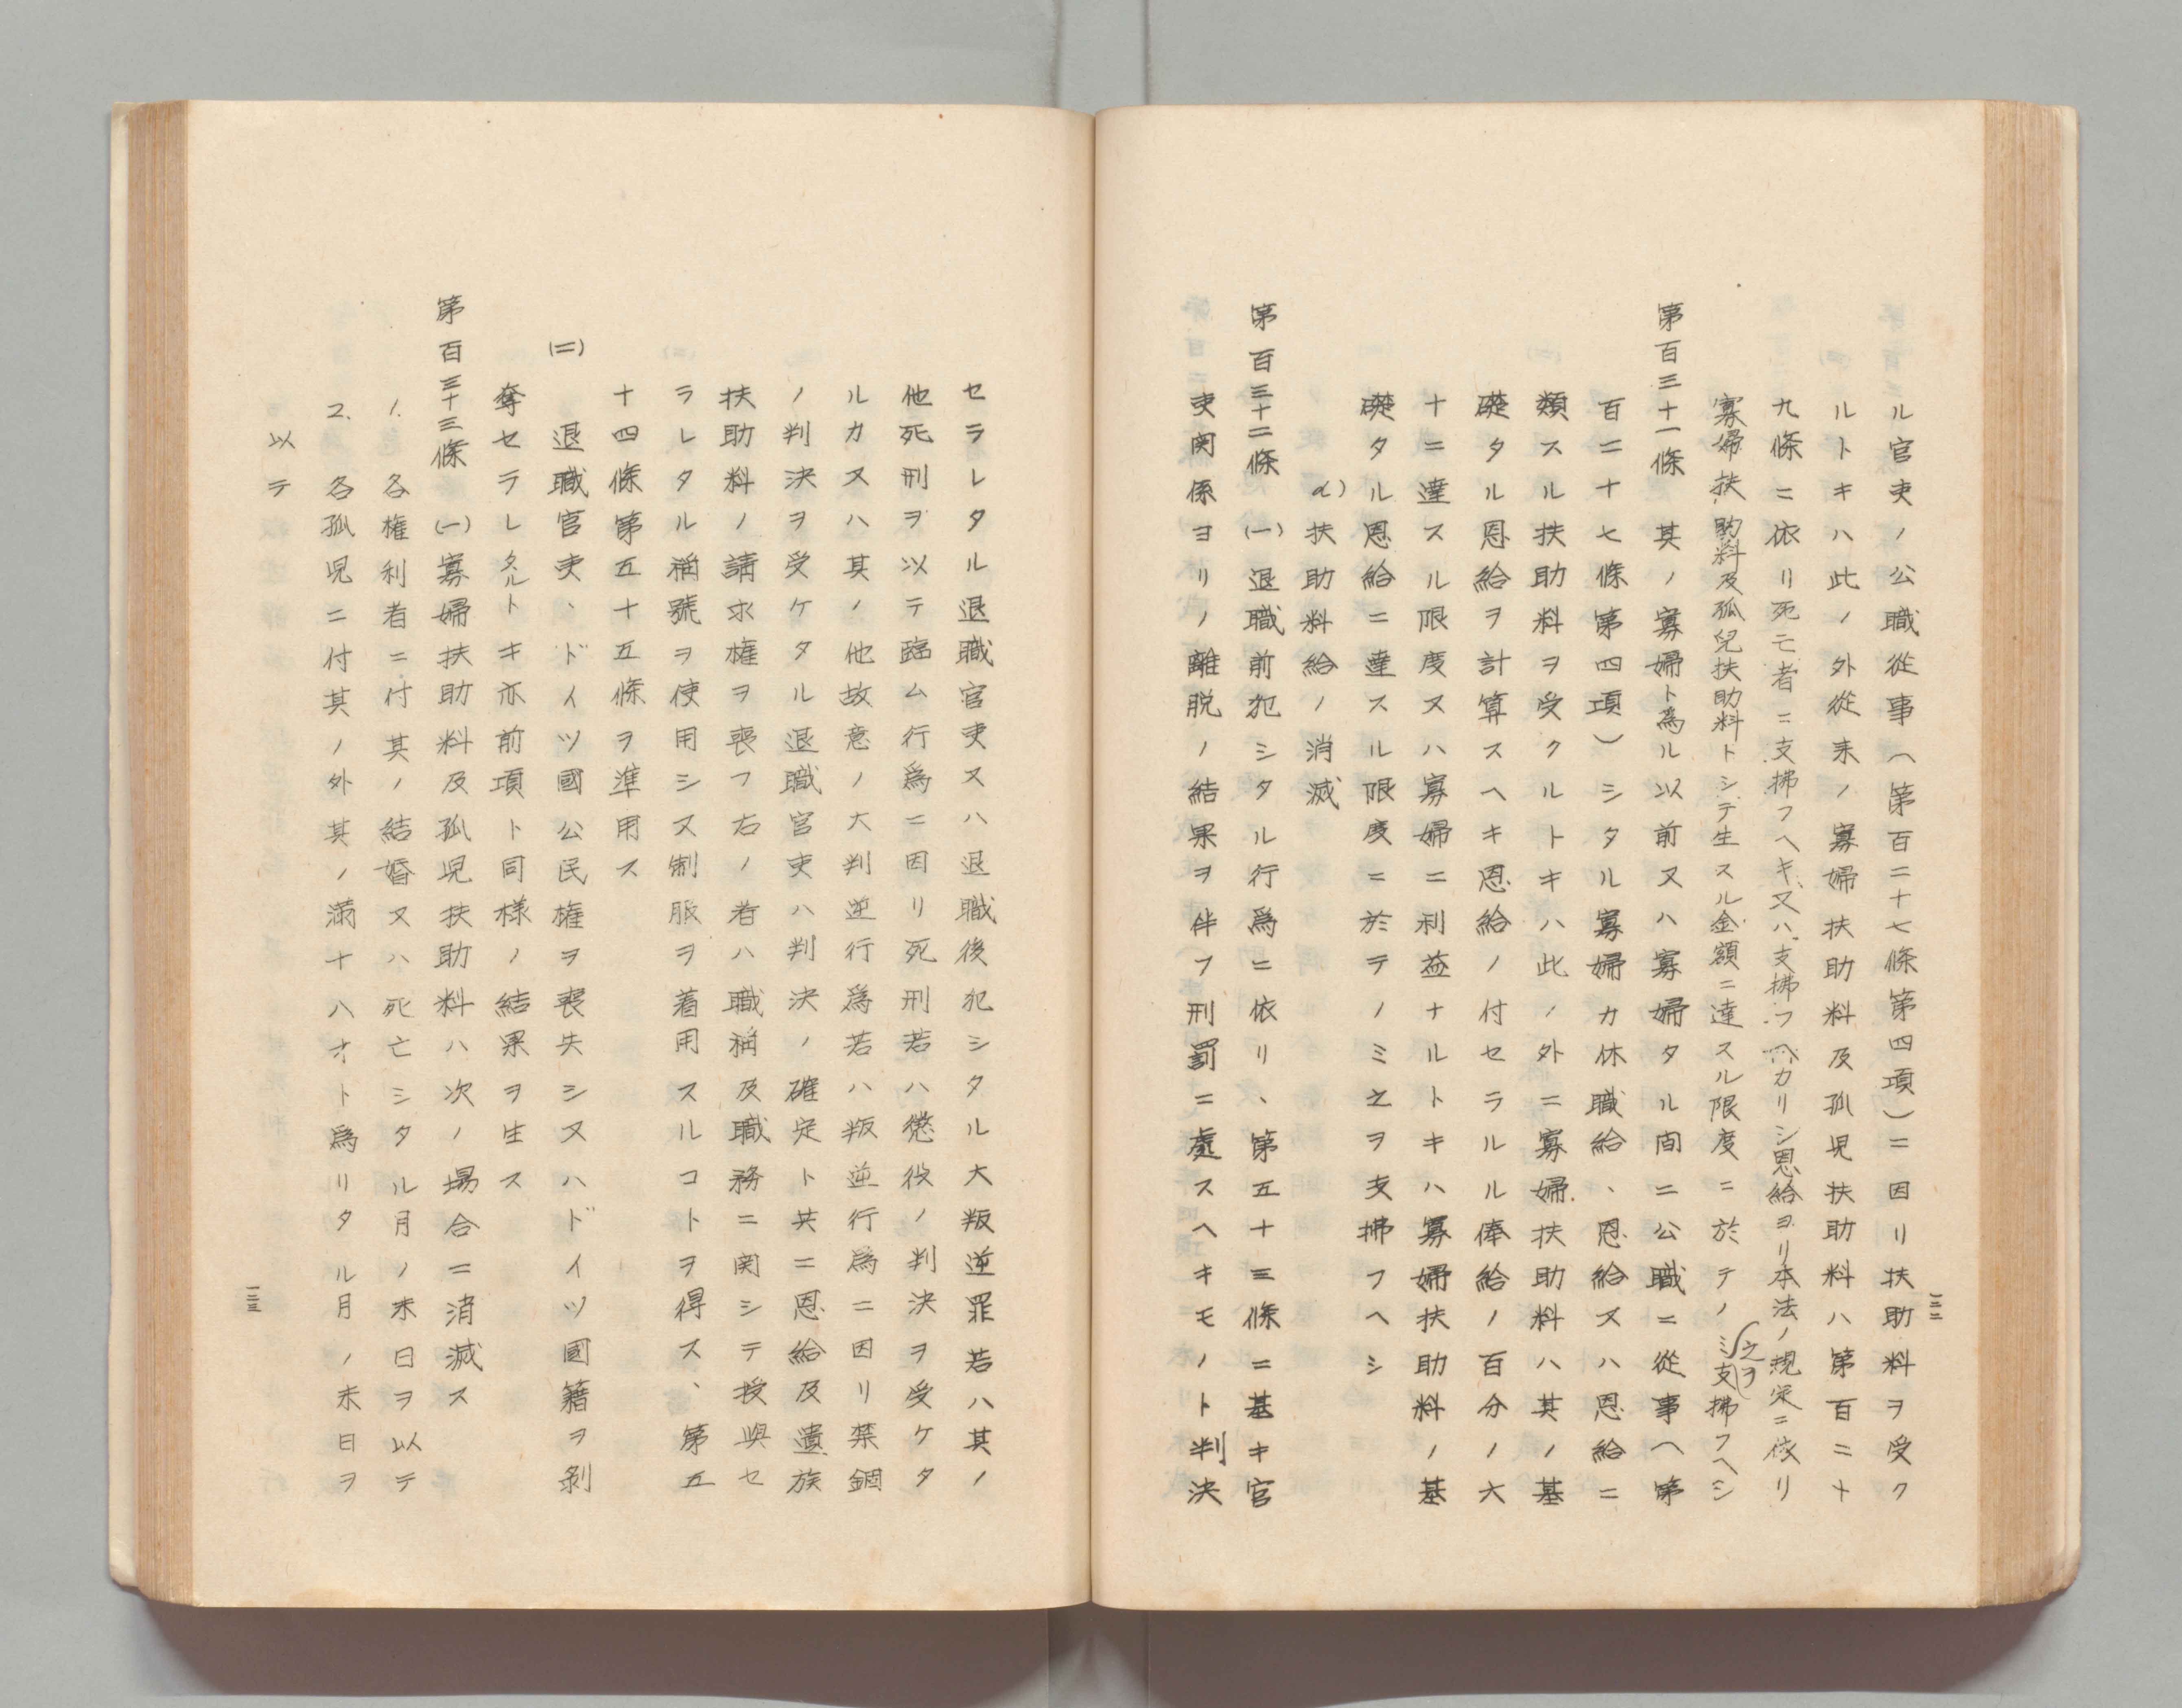 ル官吏ノ公職從事(第百二十七條第四項)ニ因リ扶助料ヲ受ク
ルトキハ此ノ外從来ノ寡婦扶助料及孤児扶助料ハ第百二十
九條ニ依リ死亡者ニ支拂フヘキ又ハ支拂フヘカリシ恩給ヨリ本法ノ規定ニ依リ
寡婦扶助料及孤兒扶助料トシテ生スル金額ニ達スル限度ニ於テノミ之ヲ支拂フヘシ
第百三十一條 其ノ寡婦ト為ル以前又ハ寡婦タル間ニ公職ニ從事(第
百二十七條第四項)シタル寡婦カ休職給、恩給又ハ恩給ニ
類スル扶助料ヲ受クルトキハ此ノ外ニ寡婦扶助料ハ其ノ基
礎タル恩給ヲ計算スヘキ恩給ノ付セラルル俸給ノ百分ノ六
十ニ達スル限度又ハ寡婦ニ利益ナルトキハ寡婦扶助料ノ基
礎タル恩給ニ達スル限度ニ於テノミ之ヲ支拂フヘシ
d)扶助料給ノ消滅
第百三十二條 (一)退職前犯シタル行爲ニ依リ、第五十三條ニ基キ官
吏関係ヨリノ離脱ノ結果ヲ伴フ刑罰ニ處スヘキモノト判決
一二二
セラレタル退職官吏又ハ退職後犯シタル大叛逆罪若ハ其ノ
他死刑ヲ以テ臨ム行爲ニ因リ死刑若ハ懲役ノ判決ヲ受ケタ
ルカ又ハ其ノ他故意ノ大判逆行爲若ハ叛逆行爲ニ因リ禁錮
ノ判決ヲ受ケタル退職官吏ハ判決ノ確定ト共ニ恩給及遺族
扶助料ノ請求権ヲ喪フ右ノ者ハ職稱及職務ニ関シテ授與セ
ラレタル稱號ヲ使用シ又制服ヲ着用スルコトヲ得ス、第五
十四條第五十五條ヲ準用ス
(二) 退職官吏、ドイツ國公民権ヲ喪失シ又ハドイツ國籍ヲ剝
奪セラレタルトキ亦前項ト同様ノ結果ヲ生ス
第百三十三條 (一)寡婦扶助料及孤児扶助料ハ次ノ場合ニ消滅ス
1. 各権利者ニ付其ノ結婚又ハ死亡シタル月ノ末日ヲ以テ
2. 各孤児ニ付其ノ外其ノ満十八才ト爲リタル月ノ末日ヲ
以テ
一二三